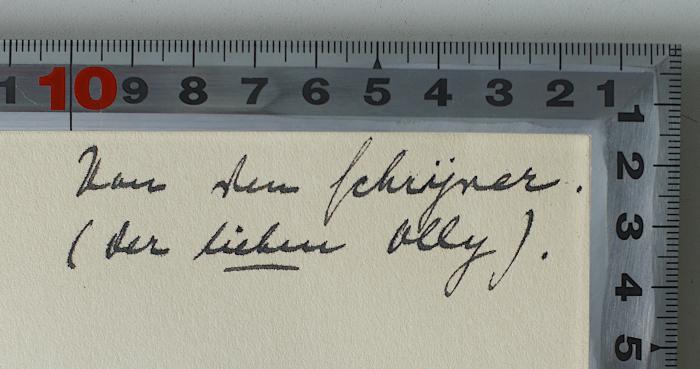 1 10 9 8 7 6 5 4 3 2 1
Von dem Schrijver.
(der lieben Olly).
1
2
3
4
5